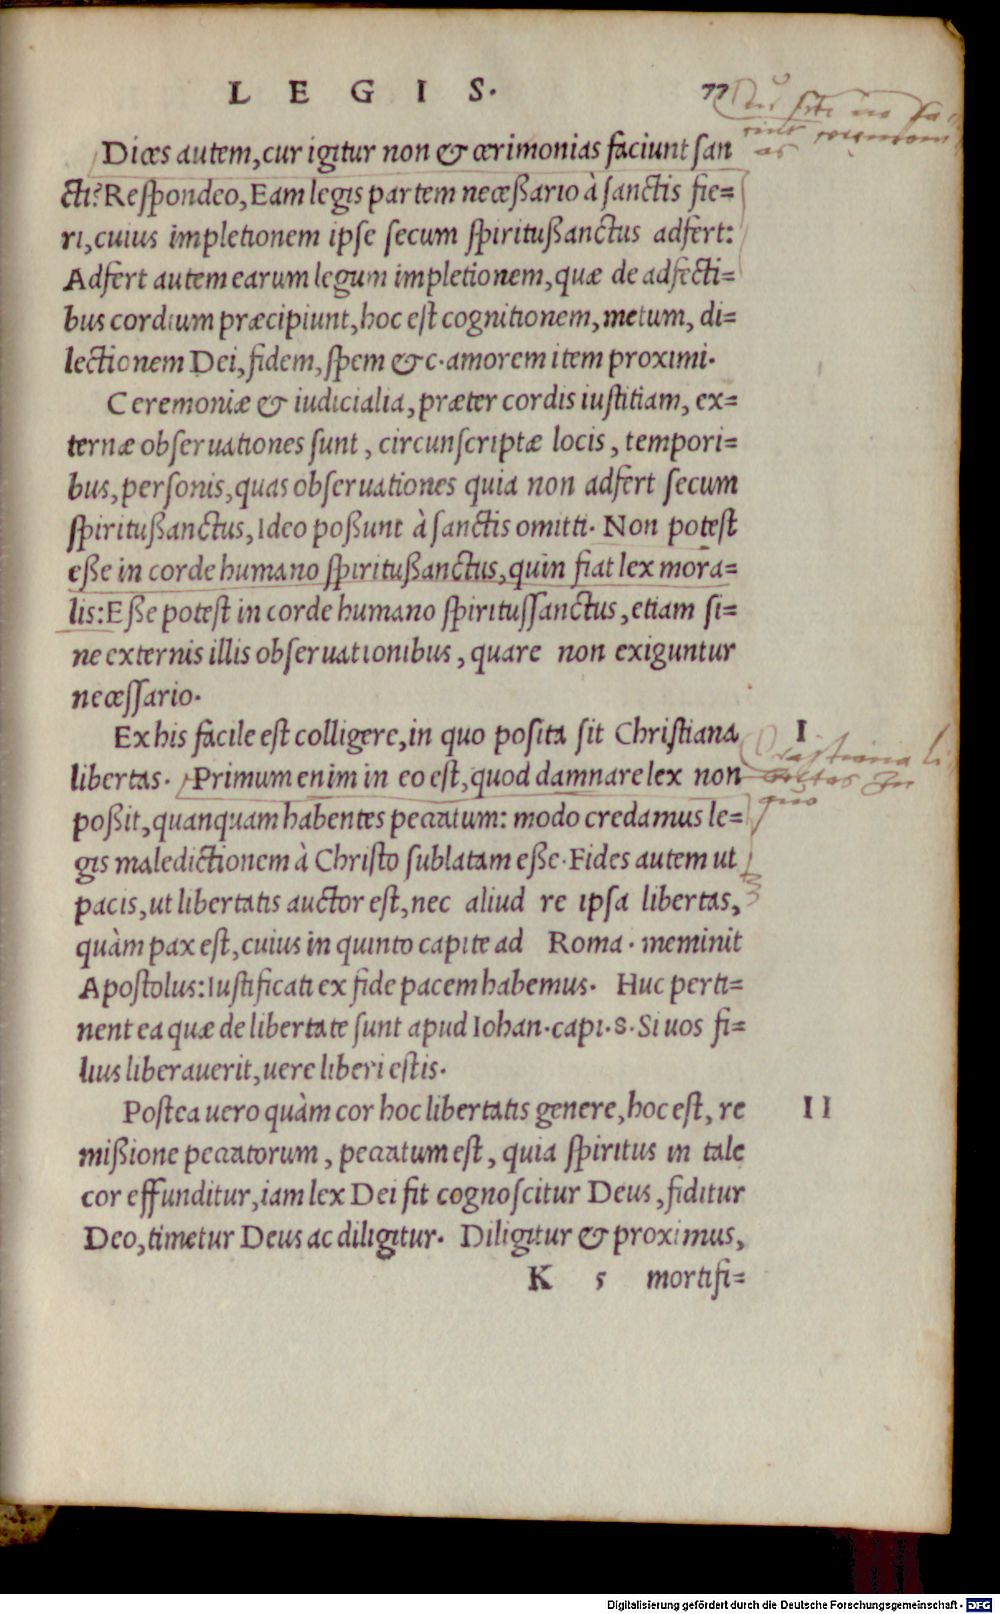 LEGIS. 77
Dices autem, cur igitur non & cerimonias faciunt san
cti? Respondeo, Eam legis partem necessario à sanctis fie=
ri, cuius impletionem ipse secum spiritußanctus adfert:
Adfert autem earum legum impletionem, quæ de adfecti=
bus cordium præcipiunt, hoc est cognitionem, metum, di=
lectionem Dei, fidem, spem &c. amorem item proximi.
Ceremoniæ & iudicialia, præter cordis iustitiam, ex=
ternæ observationes sunt, circunscriptæ locis, tempori=
bus, personis, quas observationes quia non adfert secum
spiritußanctus, Ideo poßunt à sanctis omitti. Non potest
eße in corde humano spiritußanctus, quin fiat lex mora=
lis: Eße potest in corde humano spiritussanctus, etiam si=
ne externis illis observationibus, quare non exiguntur
necessario.
Ex his facile est colligere, in quo posita sit Christiana I
libertas. Primum enim in eo est, quod damnare lex non
Christiana li
bertas In
quo
poßit, quanquam habentes peccatum: modo credamus le=
gis maledictionem à Christo sublatam eße. Fides autem ut
pacis, ut libertatis auctor est, nec aliud re ipsa libertas,
quàm pax est, cuius in quinto capite ad Roma. meminit
Apostolus: Iustificati ex fide pacem habemus. Huc perti=
nent ea quæ de libertate sunt apud Iohan. capi. 8. Si uos fi=
lius liberaverit, vere liberi estis.
Postea vero quàm cor hoc libertatis genere, hoc est, re II
mißione peccatorum, peccatum est, quia spiritus in tale
cor effunditur, iam lex Dei fit cognoscitur Deus, fiditur
Deo, timetur Deus ac diligitur. Diligitur & proximus,
K 5 mortifi=
Digitalisierung gefördert durch die Deutsche Forschungsgemeinschaft - DFG